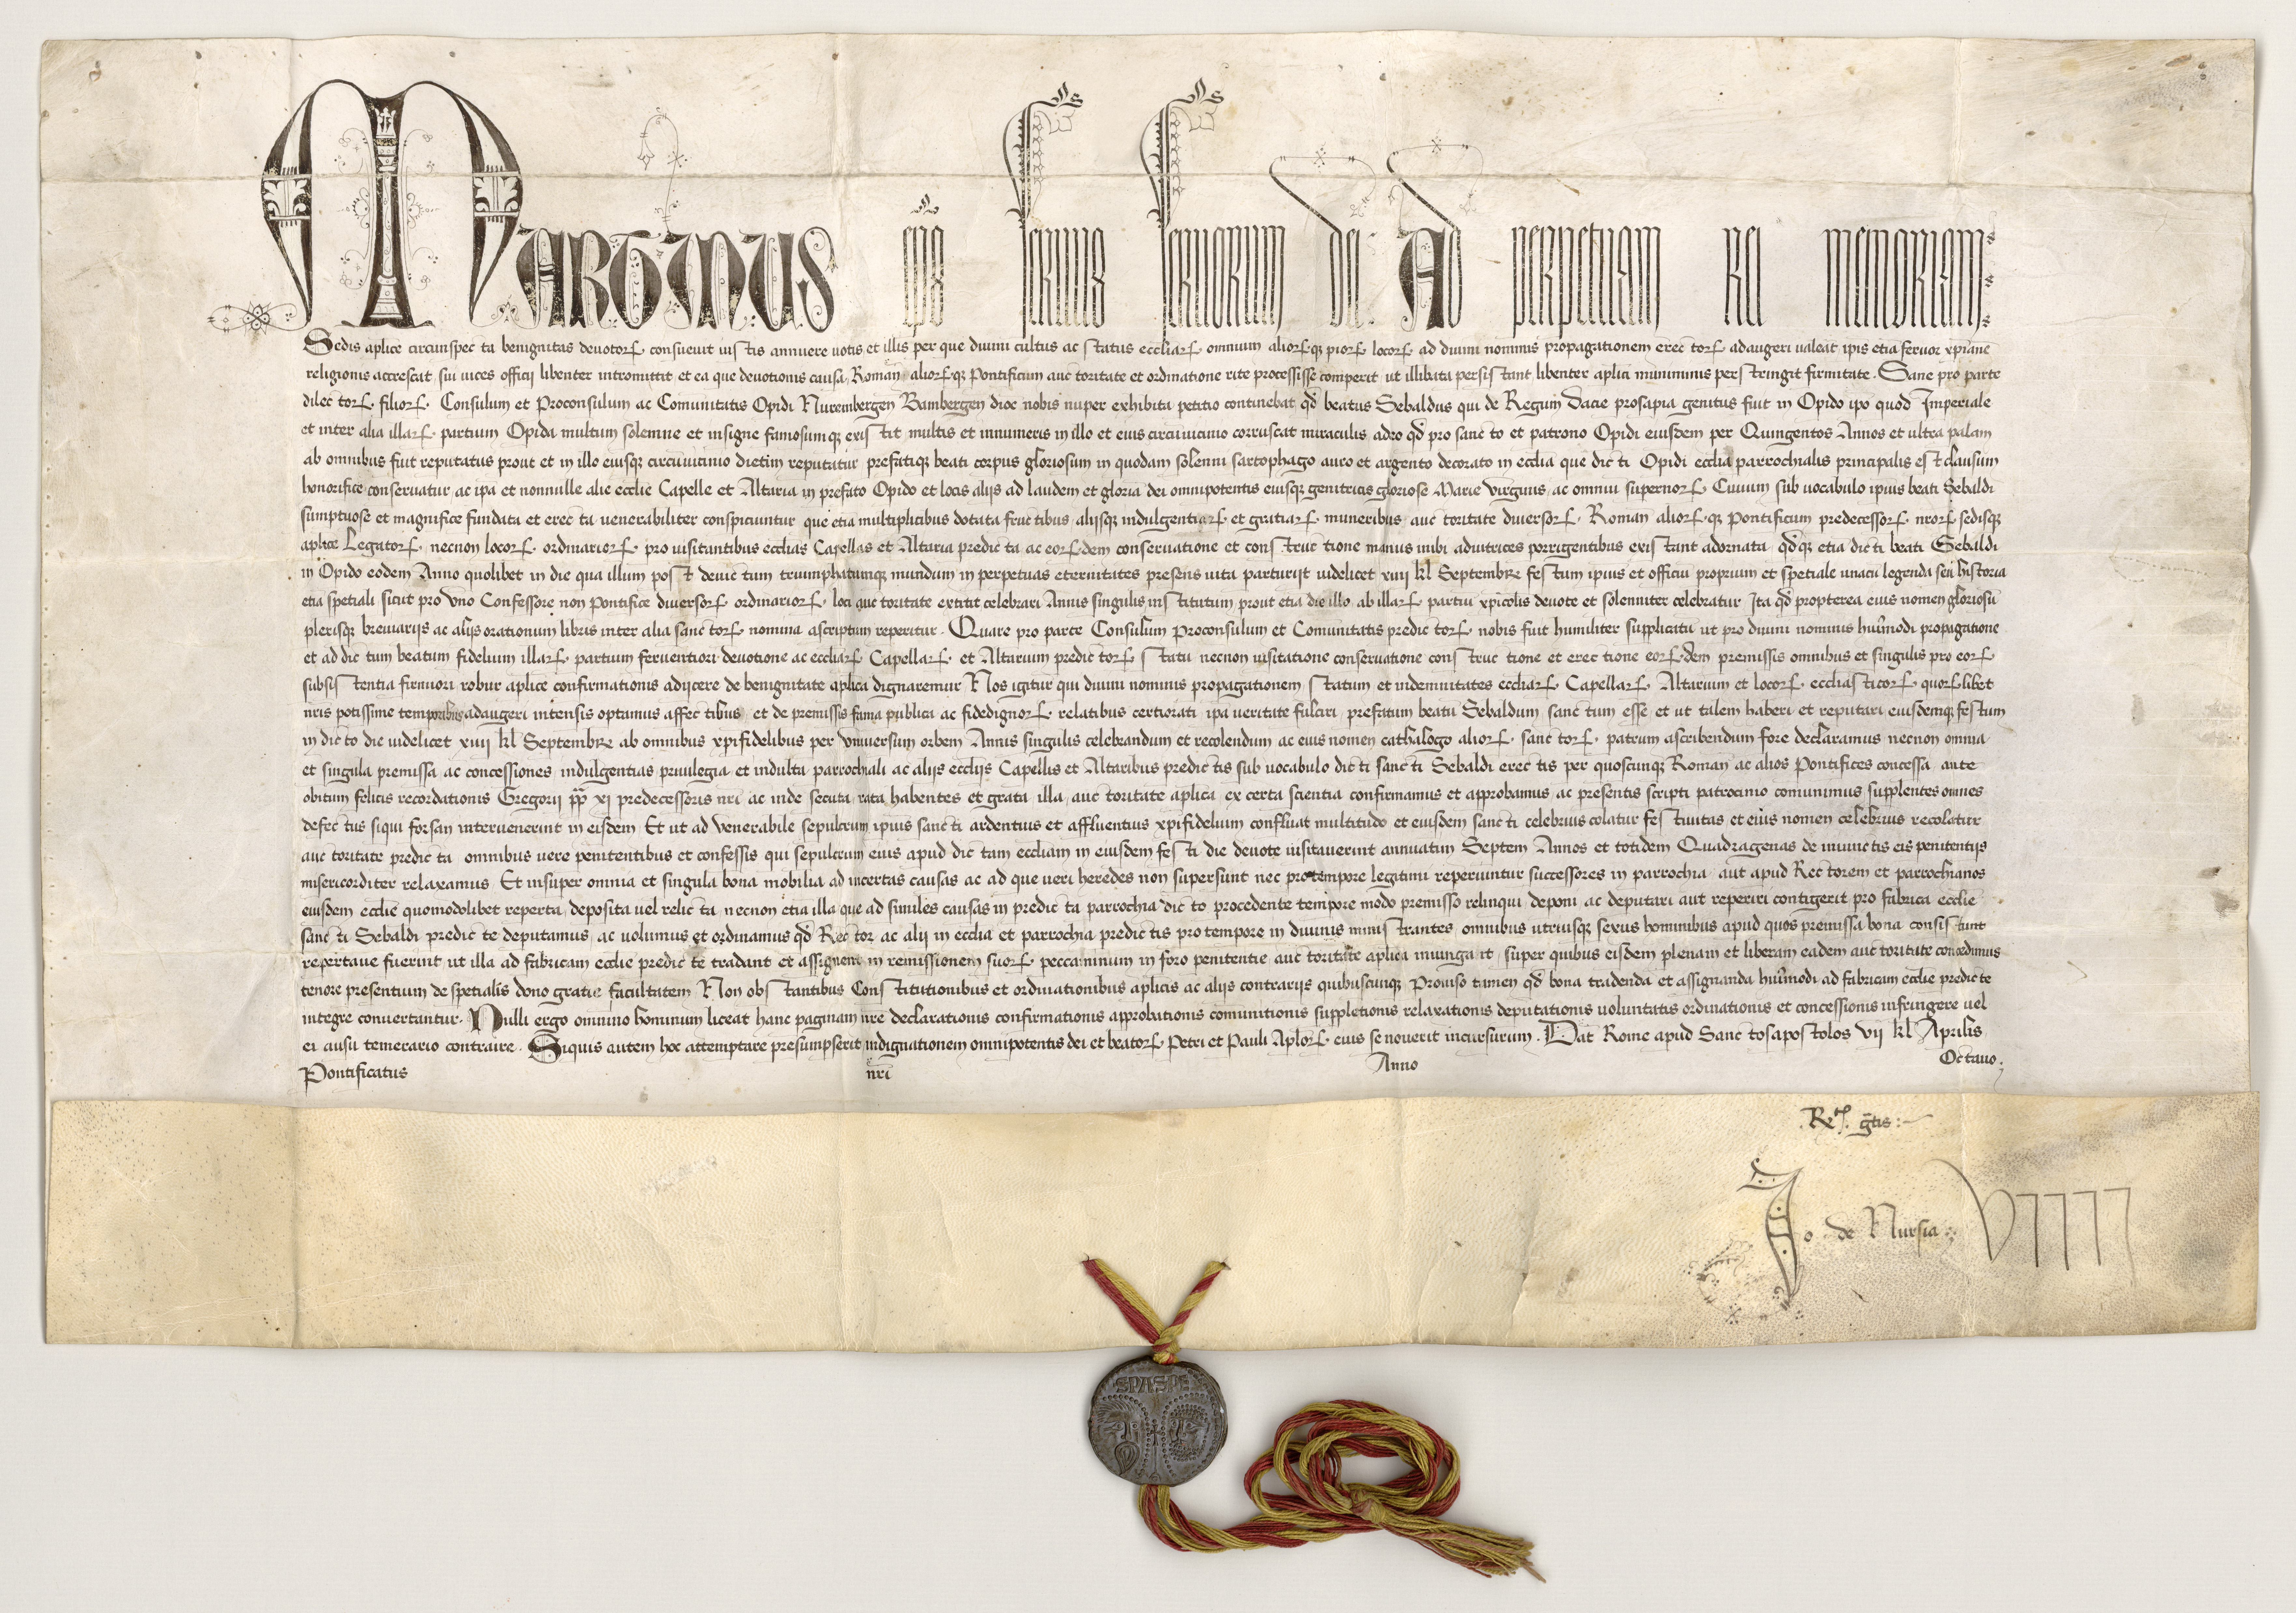 MARTINUS eps seruus seruorum dei. Ad perpetuam rei memoriam
Sedis aplice circunspecta benignitas deuotorꝝ consueuit iustis annuere uotis et illis per que diuini cultus ac status eccliarꝝ omnium aliorꝝqꝫ piorꝝ locorꝝ ad diuini nominis propagationem erectorꝝ adaugeri ualeat ipis etia feruor xpiane
religionis accrescat sui uices officij libenter intromittit et ea que deuotionis causa Roman aliorꝝqꝫ Pontificum auctoritate et ordinatione rite processisse comperit ut illibata persistant libenter aplici muniminis perstringit firmitate. Sane pro parte
dilectorꝝ filiorꝝ Consulum et Proconsulum ac Comunitatis Opidi Nurembergen Bambergen dioc nobis nuper exhibita petitio continebat qd beatus Sebaldus qui de Regum Dacie prosapia genitus fuit in Opido ipo quod Imperiale
et inter alia illarꝝ partium Opida multum solemne et insigne famosumqꝫ existit multis et innumeris in illo et eius circuuicinio corruscat miraculis adeo qd pro sancto et patrono Opidi eiusdem per Quingentos Annos et ultra palam
ab omnibus fuit reputatus prout et in illo eiusqꝫ circuuicinio dietim reputatur prefatiqꝫ beati corpus gloriosum in quodam solenni sartophago auro et argento decorato in ecclia que dicti Opidi ecclia parrochialis principalis est clausum
honorifice conseruatur ac ipa et nonnulle alie ecclie Capelle et Altaria in prefato Opido et locis alijs ad laudem et gloria dei omnipotentis eiusqꝫ genitricis gloriose Marie virginis ac omniu supernorꝝ Ciuium sub uocabulo ipius beati Sebaldi
sumptuose et magnifice fundata et erecta uenerabiliter conspiciuntur que etia multiplicibus dotata fructibus alijsqꝫ indulgentiarꝝ et gratiarꝝ muneribus auctoritate diuersorꝝ Roman aliorꝝqꝫ Pontificum predecessorꝝ nrorꝝ sedisqꝫ
aplice Legatorꝝ necnon locorꝝ ordinariorꝝ pro uisitantibus ecclias Capellas et Altaria predicta ac eorꝝdem conseruatione et constructione manus inibi adiutrices porrigentibus existant adornata qdqꝫ etia dicti beati Sebaldi
in Opido eodem Anno quolibet in die qua illum post deuictum triumphatumqꝫ mundum in perpetuas eternitates presens uita parturijt uidelicet xiiij kl Septembre festum ipius et officiu proprium et spetiale unacu legenda seu historia
etia spetiali sicut pro vno Confessore non Pontifice diuersorꝝ ordinariorꝝ loci auctoritate extitit celebrari Annis singulis institutum prout etia die illo ab illarꝝ partiu xpicolis deuote et solenniter celebratur Ita qd propterea eius nomen gloriosu
plerisqꝫ breuiarijs ac alijs orationum libris inter alia sanctorꝝ nomina ascriptum reperitur. Quare pro parte Consulum Proconsulum et Comunitatis predictorꝝ nobis fuit humiliter supplicatu ut pro diuini nominis huiusmodi propagatione
et ad dictum beatum fidelium illarꝝ partium feruentiori deuotione ac eccliarꝝ Capellarꝝ et Altarium predictorꝝ statu necnon uisitatione conseruatione constructione et erectione eorꝝdem premissis omnibus et singulis pro eorꝝ
subsistentia firmiori robur aplice confirmationis adijcere de benignitate aplica dignaremur Nos igitur qui diuini nominis propagationem statum et indemnitates eccliarꝝ Capellarꝝ Altarium et locorꝝ ecclasticorꝝ quorꝝlibet
nris potissime temporibus adaugeri intensis optamus affectibus et de premissis fama publica ac fidedignorꝝ relatibus certiorati ipa ueritate fulciri prefatum beatu Sebaldum sanctum esse et ut talem haberi et reputari eiusdemqꝫ festum
in dicto die uidelicet xiiij kl Septembre ab omnibus xpifidelibus per vniuersum orbem Annis singulis celebrandum et recolendum ac eius nomen cathalogo aliorꝝ sanctorꝝ patrum ascribendum fore declaramus necnon omnia
et singula premissa ac concessiones indulgentias priuilegia et indulta parrochiali ac alijs ecclijs Capellis et Altaribus predictis sub uocabulo dicti sancti Sebaldi erectis per quoscunqꝫ Roman ac alios Pontifices concessa ante
obitum felicis recordationis Gregorij pp xj predecessoris nri ac inde secuta rata habentes et grata illa auctoritate aplica ex certa scientia confirmamus et approbamus ac presentis scripti patrocinio comunimus supplentes omnes
defectus siqui forsan interuenerint in eisdem Et ut ad venerabile sepulcrum ipius sancti ardentius et affluentius xpifidelium confluat multitudo et eiusdem sancti celebrius colatur festiuitas et eius nomen celebrius recolatur
auctoritate predicta omnibus uere penitentibus et confessis qui sepulcrum eius apud dictam eccliam in eiusdem festi die deuote uisitauerint annuatim Septem Annos et totidem Quadragenas de iniunctis eis penitentijs
misericorditer relaxamus Et insuper omnia et singula bona mobilia ad incertas causas ac ad que ueri heredes non supersunt nec protempore legitimi reperiuntur successores in parrochia aut apud Rectorem et parrochianos
eiusdem ecclie quomodolibet reperta deposita uel relicta necnon etia illa que ad similes causas in predicta parrochia dicto procedente tempore modo premisso relinqui deponi ac deputari aut reperiri contigerit pro fabrica ecclie
sancti Sebaldi predicte deputamus ac uolumus et ordinamus qd Rector ac alij in ecclia et parrochia predictis pro tempore in diuinis ministrantes omnibus utriusqꝫ sexus hominibus apud quos premissa bona consistunt
repertaue fuerint ut illa ad fabricam ecclie predicte tradant et assignent in remissionem suorꝝ peccaminum in foro penitentie auctoritate aplica iniungant super quibus eisdem plenam et liberam eadem auctoritate concedimus
tenore presentium de spetialis dono gratie facultatem Non obstantibus Constitutionibus et ordinationibus aplicis ac alijs contrarijs quibuscunqꝫ Prouiso tamen qd bona tradenda et assignanda huiusmodi ad fabricam ecclie predicte
integre conuertantur. Nulli ergo omnino hominum liceat hanc paginam nre declarationis confirmationis approbationis comunitionis suppletionis relaxationis deputationis uoluntatis ordinationis et concessionis infringere uel
ei ausu temerario contraire. Siquis autem hoc attemptare presumpserit indignationem omnipotentis dei et beatorꝝ Petri et Pauli Aplorꝝ eius se nouerit incursurum. Dat Rome apud Sanctosapostolos vij kl Aprilis
Pontificatus nri Anno Octauo
Rta gtis
Jo de Nursia VIIII
SPASPE